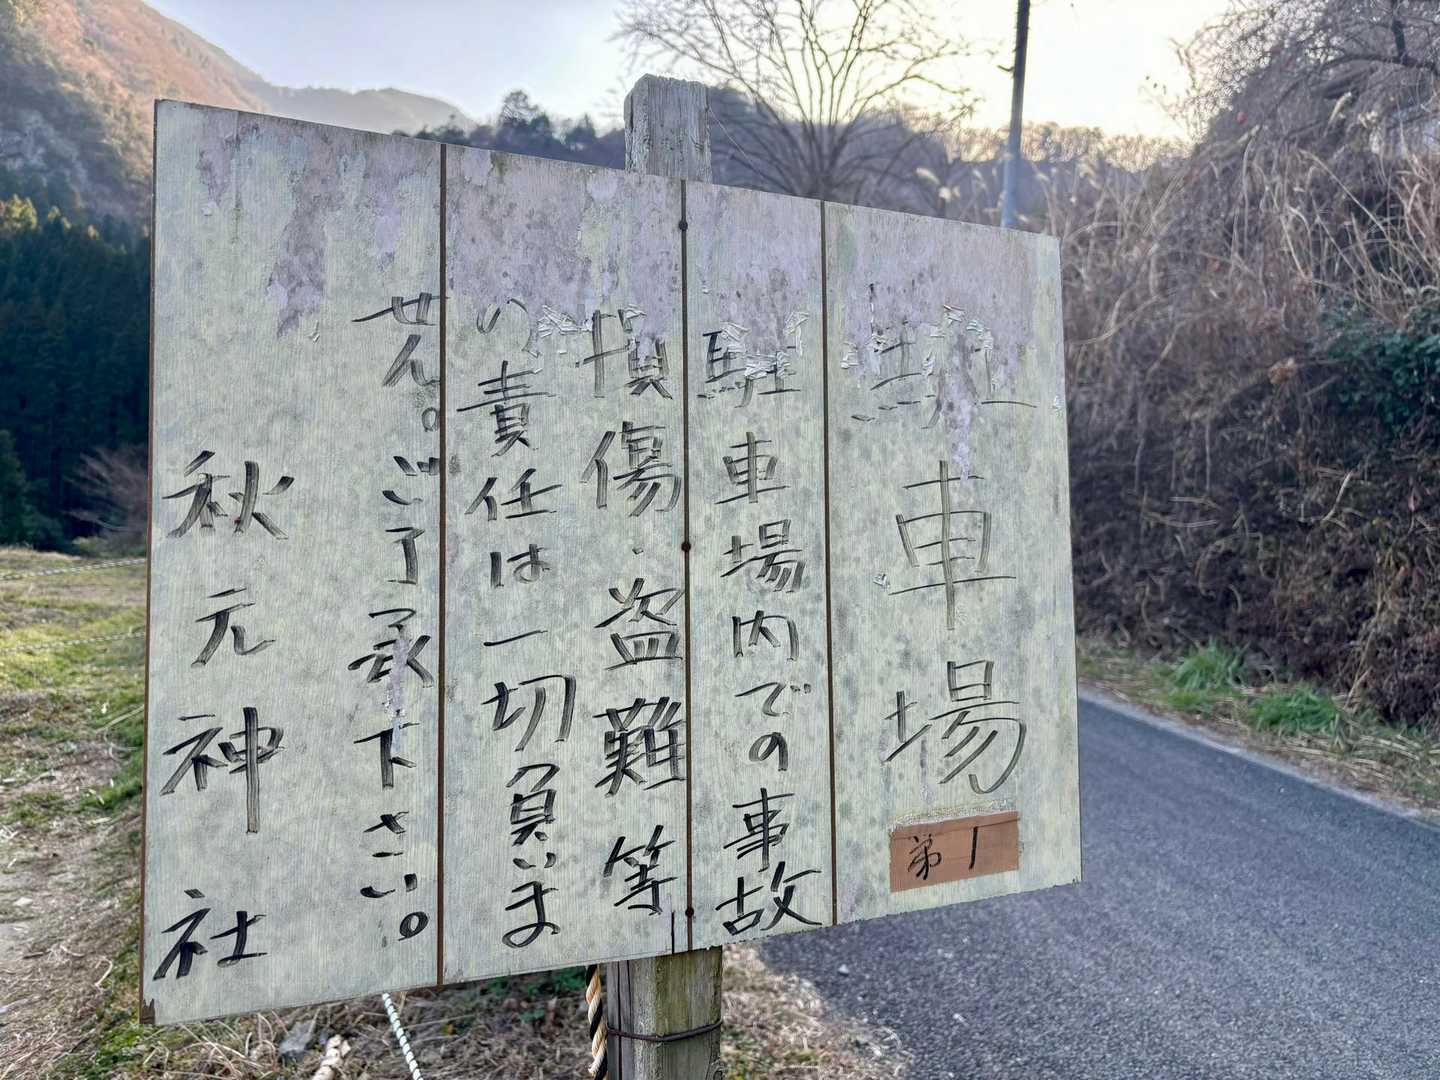 駐車場
第1
駐車場内での事故
損傷・盗難等
の責任は一切負いま
せん。ご了承下さい。
秋元神社